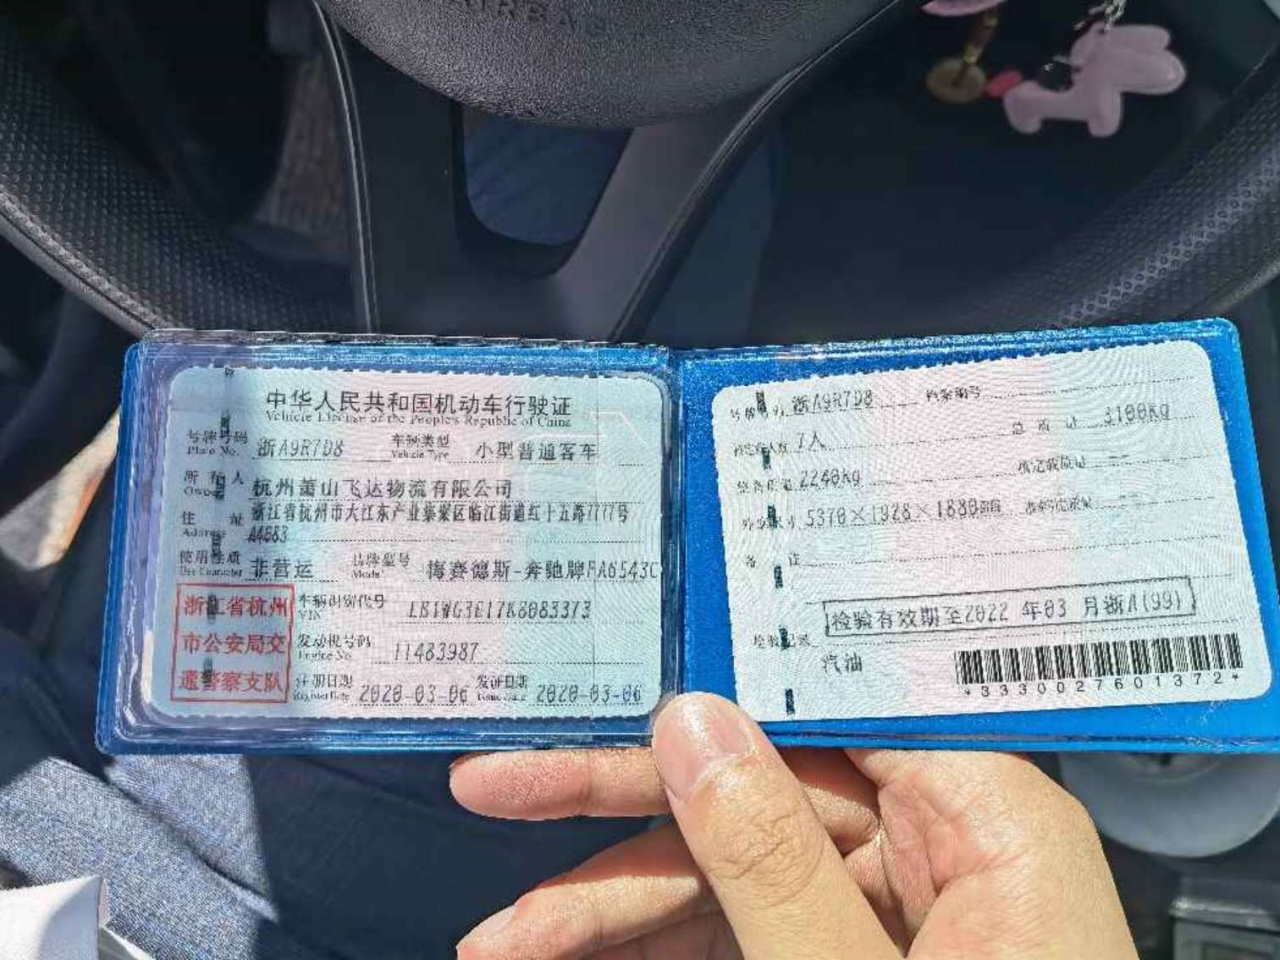 AIRBAG
中华人民共和国机动车行驶证
Vehicle License of the People's Republic of China
号牌号码 浙A9R7D8 车辆类型 小型普通客车
Plate No. Vehicle Type
所有人 杭州萧山飞达物流有限公司
Owner
住址 浙江省杭州市大江东产业集聚区临江街道红十五路7777号
Address A4683
使用性质 非营运 品牌型号 梅赛德斯-奔驰牌FA6543C
Use Character Model
浙江省杭州
市公安局交
通警察支队
车辆识别代号
VIN
发动机号码 11483987
Engine No.
注册日期 2020-03-06 发证日期 2020-03-06
Register Date Issue Date
号牌号码 浙A9R7D8 档案编号
核定载人数 7人 总质量 3100Kg
整备质量 2240Kg 核定载质量
外廓尺寸 5370×1928×1880mm 准牵引总质量
备注
检验有效期至2022年03月浙A(99)
检验记录
汽油
*3330027601372*